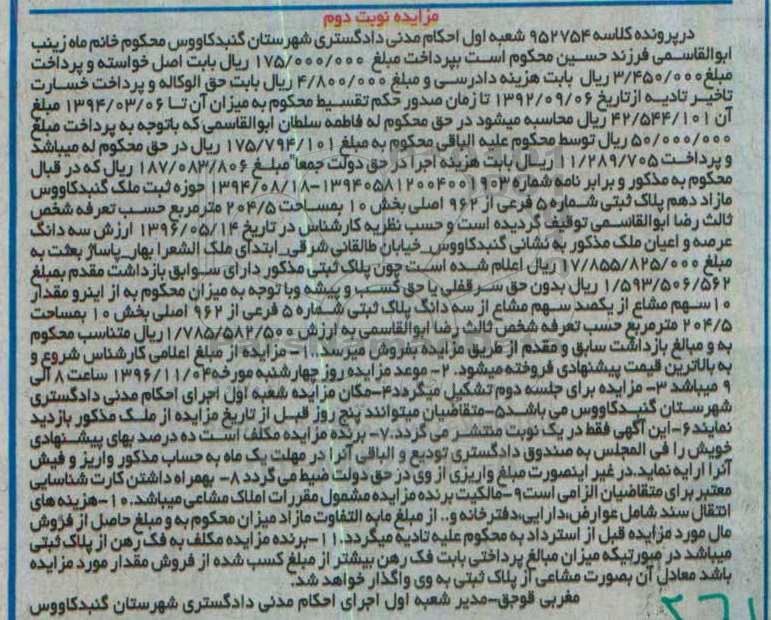 مزایده نوبت دوم
درپرونده کلاسه ۹۵۲۷۵۴ شعبه اول احکام مدنی دادگستری شهرستان گنبدکاووس محکوم خانم ماه زینب
ابوالقاسمی فرزند حسین محکوم است بپرداخت مبلغ ۱۷۵/۰۰۰/۰۰۰ ریال بابت اصل خواسته و پرداخت
مبلغ ۳/۴۵۰/۰۰۰ ریال بابت هزینه دادرسی و مبلغ ۴/۸۰۰/۰۰۰ ریال بابت حق الوکاله و پرداخت خسارت
تاخیر تادیه ازتاریخ ۱۳۹۲/۰۹/۰۶ تا زمان صدور حکم تقسیط محکوم به میزان آن تا ۱۳۹۴/۰۳/۰۶ مبلغ
آن ۴۲/۵۴۴/۱۰۱ ریال محاسبه میشود در حق محکوم له فاطمه سلطان ابوالقاسمی که باتوجه به پرداخت مبلغ
۵۰/۰۰۰/۰۰۰ ریال توسط محکوم علیه الباقی محکوم به مبلغ ۱۷۵/۷۹۴/۱۰۱ ریال در حق محکوم له میباشد
و پرداخت ۱۱/۲۸۹/۷۰۵ ریال بابت هزینه اجرا در حق دولت جمعا" مبلغ ۱۸۷/۰۸۳/۸۰۶ ریال که در قبال
محکوم به مذکور و برابر نامه شماره ۱۳۹۴۰۵۸۱۲۰۰۴۰۰۱۹۰۳-۱۳۹۴/۰۸/۱۸ حوزه ثبت ملک گنبدکاووس
مازاد دهم پلاک ثبتی شماره ۵ فرعی از ۹۶۲ اصلی بخش ۱۰ بمساحت ۲۰۴/۵ مترمربع حسب تعرفه شخص
ثالث رضا ابوالقاسمی توقیف گردیده است و حسب نظریه کارشناس در تاریخ ۱۳۹۶/۰۵/۱۴ ارزش سه دانگ
عرصه و اعیان ملک مذکور به نشانی گنبدکاووس_خیابان طالقانی شرقی_ابتدای ملک الشعرا بهار_پاساژ بعثت به
مبلغ ۱۷/۸۵۵/۸۲۵/۰۰۰ ریال اعلام شده است چون پلاک ثبتی مذکور دارای سوابق بازداشت مقدم بمبلغ
۱/۵۹۳/۵۰۶/۵۶۲ ریال بدون حق سرقفلی یا حق کسب و پیشه وبا توجه به میزان محکوم به از اینرو مقدار
۱۰سهم مشاع از یکصد سهم مشاع از سه دانگ پلاک ثبتی شماره ۵ فرعی از ۹۶۲ اصلی بخش ۱۰ بمساحت
۲۰۴/۵ مترمربع حسب تعرفه شخص ثالث رضا ابوالقاسمی به ارزش ۱/۷۸۵/۵۸۲/۵۰۰ ریال متناسب محکوم
به و مبالغ بازداشت سابق و مقدم از طریق مزایده بفروش میرسد.۱- مزایده از مبلغ اعلامی کارشناس شروع و
به بالاترین قیمت پیشنهادی فروخته میشود. ۲- موعد مزایده روز چهارشنبه مورخه ۱۳۹۶/۱۱/۰۴ ساعت ۸ الی
۹ میباشد ۳- مزایده برای جلسه دوم تشکیل میگردد۴-مکان مزایده شعبه اول اجرای احکام مدنی دادگستری
شهرستان گنبدکاووس می باشد۵-متقاضیان میتوانند پنج روز قبل از تاریخ مزایده از ملک مذکور بازدید
نمایند۶-این آگهی فقط در یک نوبت منتشر می گردد.۷- برنده مزایده مکلف است ده درصد بهای پیشنهادی
خویش را فی المجلس به صندوق دادگستری تودیع و الباقی آنرا در مهلت یک ماه به حساب مذکور واریز و فیش
آنرا ارایه نماید.در غیر اینصورت مبلغ واریزی از وی در حق دولت ضبط می گردد ۸- بهمراه داشتن کارت شناسایی
معتبر برای متقاضیان الزامی است۹-مالکیت برنده مزایده مشمول مقررات املاک مشاعی میباشد.۱۰-هزینه های
انتقال سند شامل عوارض،دارایی،دفترخانه و.. از مبلغ مابه التفاوت مازاد میزان محکوم به و مبلغ حاصل از فروش
مال مورد مزایده قبل از استرداد به محکوم علیه تادیه میگردد.۱۱-برنده مزایده مکلف به فک رهن از پلاک ثبتی
میباشد در صورتیکه میزان مبالغ پرداختی بابت فک رهن بیشتر از مبلغ کسب شده از فروش مقدار مورد مزایده
باشد معادل آن بصورت مشاعی از پلاک ثبتی به وی واگذار خواهد شد.
مغربی قوجق-مدیر شعبه اول اجرای احکام مدنی دادگستری شهرستان گنبدکاووس